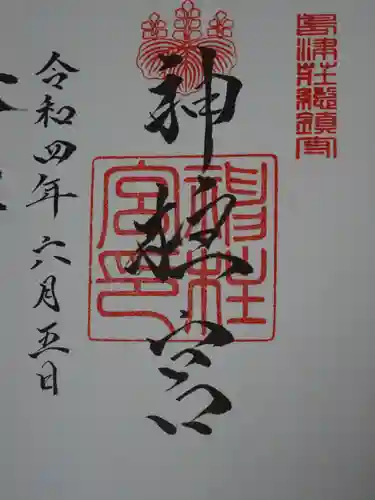 島津荘総鎮守
神柱宮
神柱
宮印
令和四年六月五日